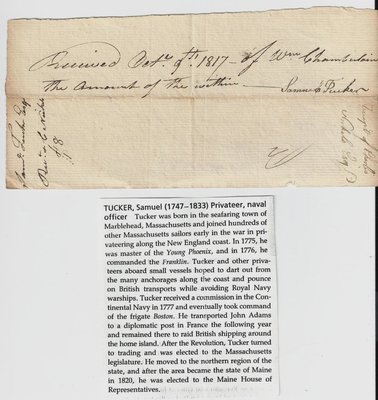 Received Octr. 9th. 1817 - of Wm Chamberlain
the amount of the within — Saml. Tucker
TUCKER, Samuel (1747–1833) Privateer, naval
officer Tucker was born in the seafaring town of
Marblehead, Massachusetts and joined hundreds of
other Massachusetts sailors early in the war in pri-
vateering along the New England coast. In 1775, he
was master of the Young Phoenix, and in 1776, he
commanded the Franklin. Tucker and other priva-
teers aboard small vessels hoped to dart out from
the many anchorages along the coast and pounce
on British transports while avoiding Royal Navy
warships. Tucker received a commission in the Con-
tinental Navy in 1777 and eventually took command
of the frigate Boston. He transported John Adams
to a diplomatic post in France the following year
and remained there to raid British shipping around
the home island. After the Revolution, Tucker turned
to trading and was elected to the Massachusetts
legislature. He moved to the northern region of the
state, and after the area became the state of Maine
in 1820, he was elected to the Maine House of
Representatives.